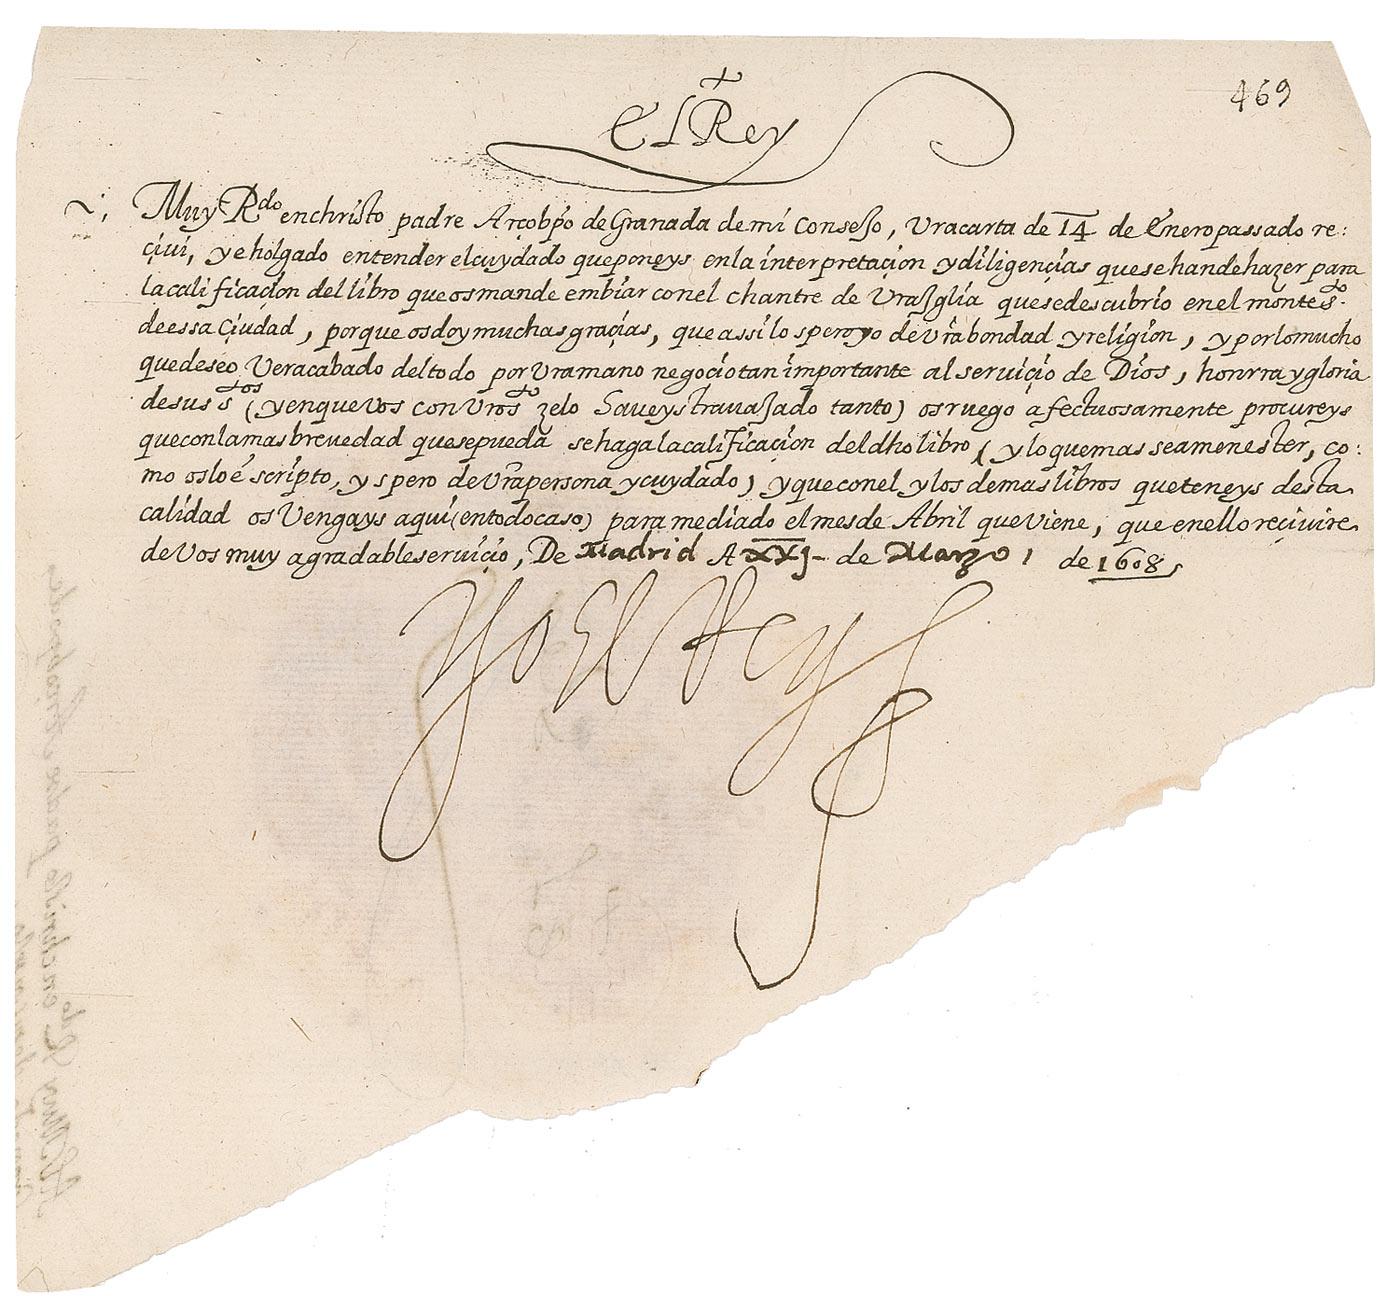 469
El Rey
Muy Rdo en christo padre Arçobpo de Granada de mi Consejo, Vra carta de 14 de Enero passado re:
çiui, y e holgado entender el cuydado que poneys en la interpretaçion y diligençias que se han de hazer para
la califficaçion del libro que os mande embiar con el chantre de Vra Iglia que se descubrio en el monte sto.
de essa Ciudad, por que os doy muchas graçias, que assi lo spero yo de vra bondad y religion, y por lo mucho
que deseo Ver acabado del todo por vra mano negoçio tan importante al seruiçio de Dios, honrra y gloria
de sus stos (y en que Vos con Vro sto zelo haueys trauajado tanto) os ruego afectuosamente procureys
que con la mas breuedad que se pueda se haga la califficaçion del dho libro (y lo que mas sea menester, co:
mo os lo e scripto, y spero de vra persona y cuydado) y que con el y los demas libros que teneys desta
calidad os Vengays aqui (en todo caso) para mediado el mes de Abril que viene, que en ello reçiuire
de Vos muy agradable seruiçio, De Madrid A XXJ de Março de 1608,
Yo El Rey